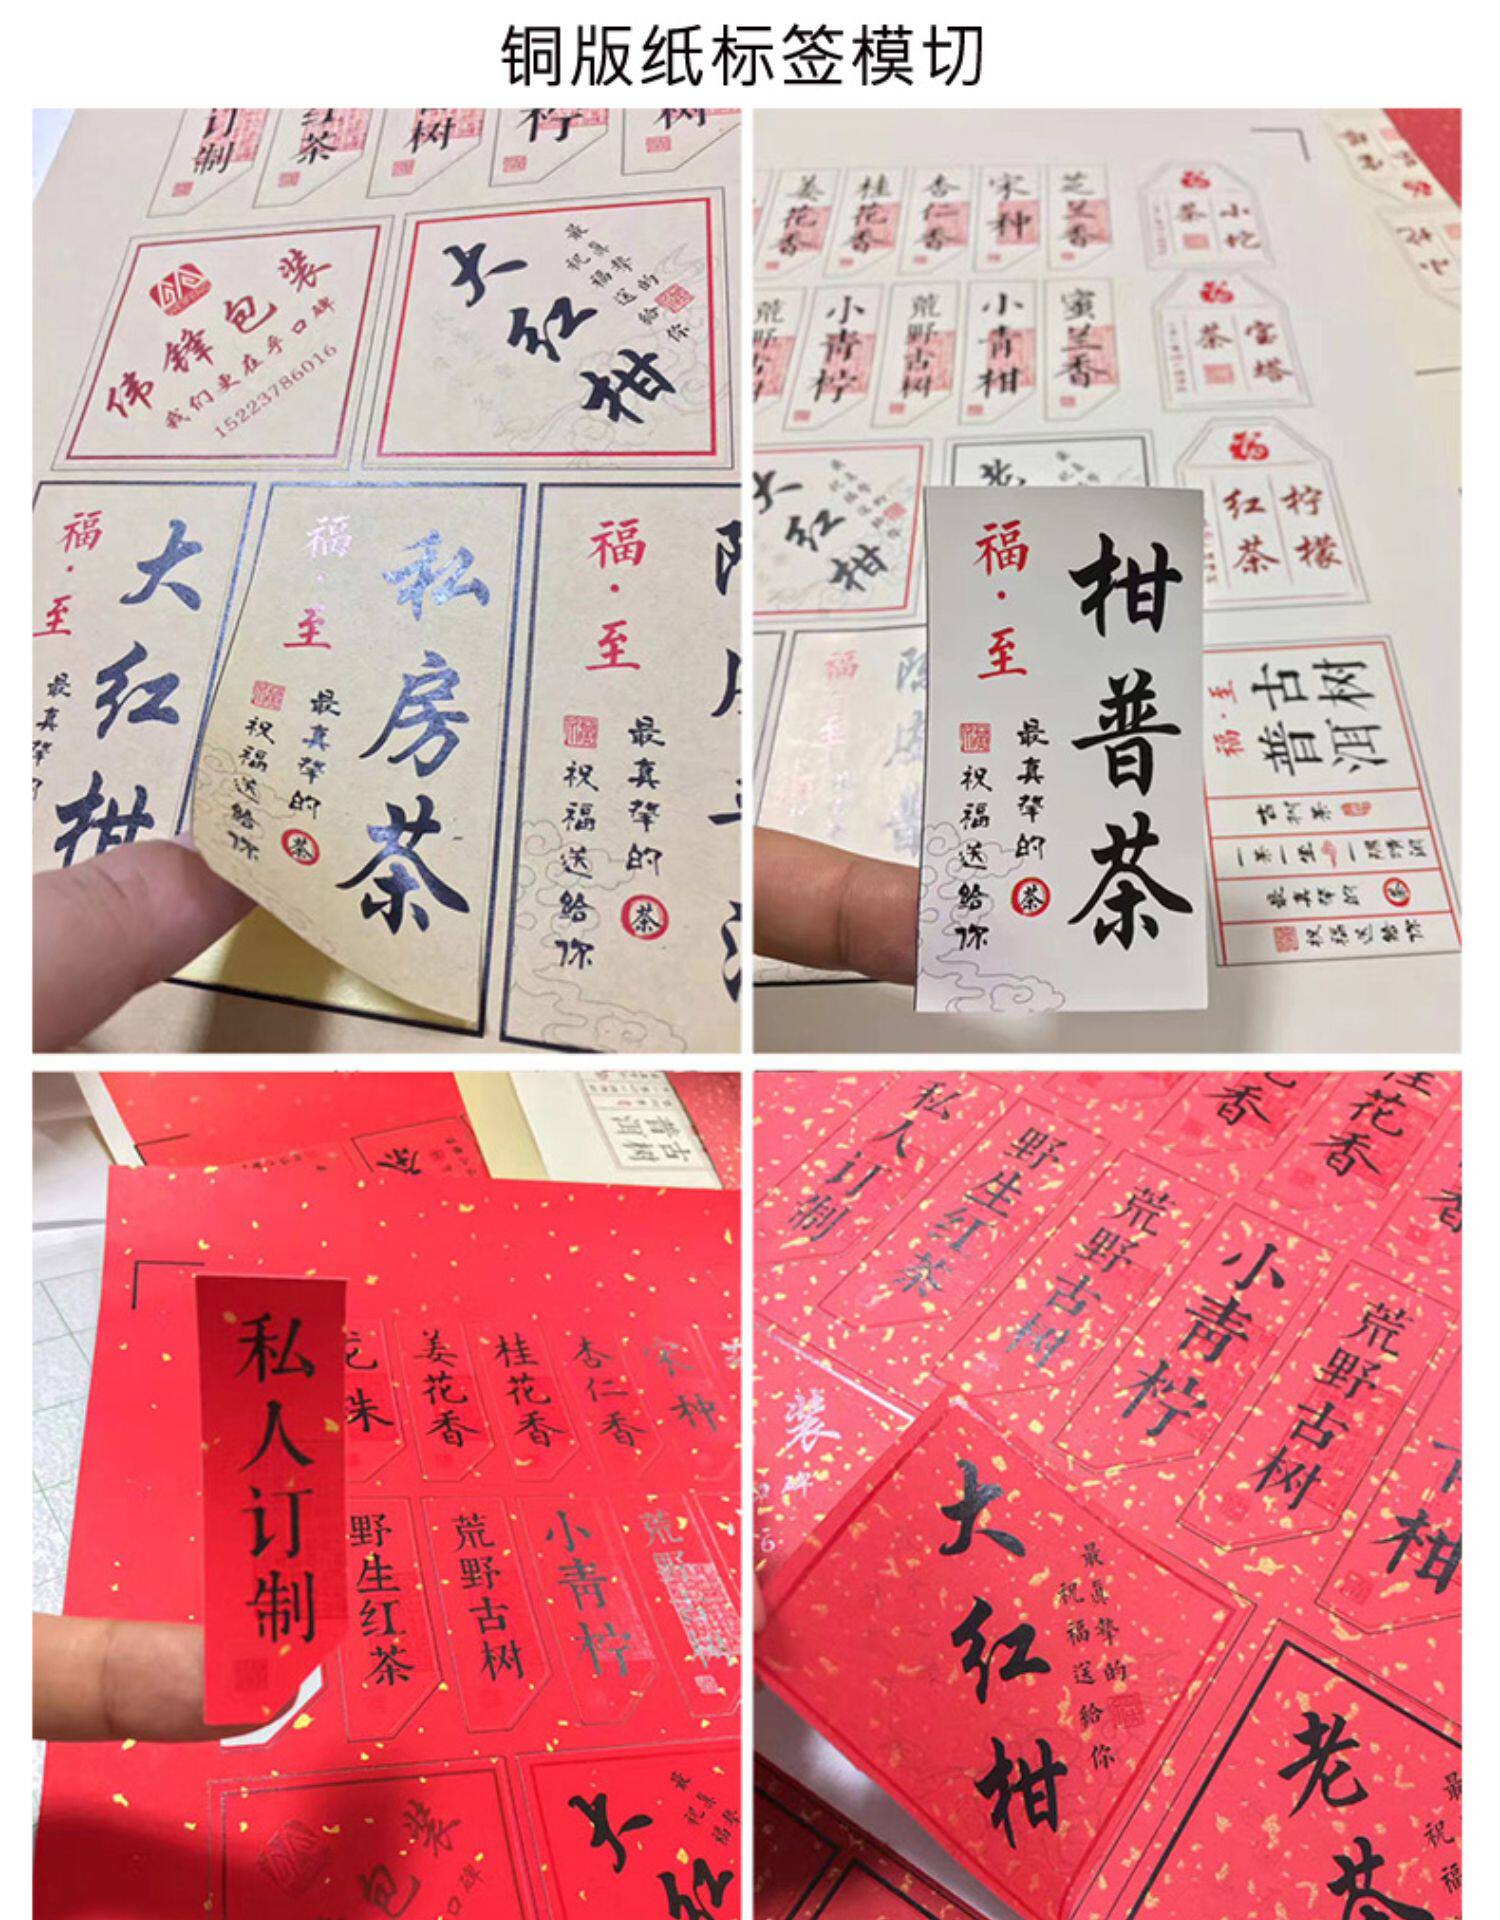 铜版纸标签模切
订制
红茶
树
柠
树
伟锋包装
我们更在乎口碑
15223786016
大红柑
最真挚的
祝福送给你
福·至
大红柑
最真挚的
福·至
私房茶
最真挚的
茶
祝福送给你
福·至
最真挚的
茶
祝福送给你
姜花香
桂花香
杏仁香
宋种
芝兰香
福
小坨
茶
小青柠
荒野古树
小青柑
蜜兰香
福
宝塔
茶
大红柑
老
福
柠檬
红茶
福·至
柑普茶
最真挚的
茶
祝福送给你
福·至
古树
普洱
最真挚的
茶
祝福送给你
古树
普洱
茶
私人订制
姜花香
桂花香
杏仁香
宋种
野生红茶
荒野古树
小青柠
荒野古树
包装
口碑
大红
最真
祝福
私人订制
野生红茶
荒野古树
小青柠
荒野古树
花香
桂花香
柑
装
碑
6
大红柑
最真挚的
祝福送给你
老茶
最
祝福